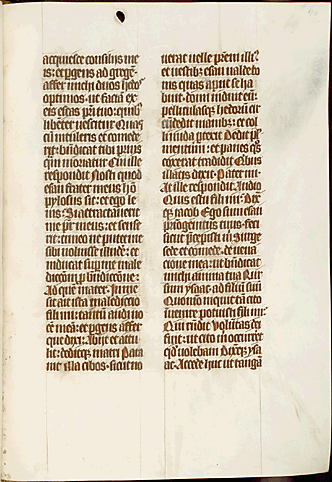 acquiesce consiliis me
is: et pgens ad gregē
affer michi duos hedos
optimos· ut faciā ex
eis escas pri tuo· quibꝫ
libēter vescitur Quas
cū intuleris et comede
rit: bn̄dicat tibi priꝰqꝫ
moriatur Cui ille
respondit Nosti quod
esau frater meus hō
pylosus sit: et ego le
nis: Si attractauerit
me pr̄ meus: et sense
rit: timeo ne putet me
sibi voluisse illudē: et
inducat suꝑ me male
dictōnem pro bn̄dictōne·
Ad quē mater: In me
sit ait ista maledictio
fili mi: tantū audi uo
cē meā: et pergens affer
que dixi: Abijt et attu
lit: deditqꝫ matri Para
uit illa cibos· sicut no
uerat uelle prēm illiꝰ
et uestibꝫ esau ualde bo
nis quas apud se ha
buit· domi induit eū:
pelliculasqꝫ hedorū cir
cūdedit manibꝫ: et col
li nuda ptexit Dedit pul
mentum: et panes qͦs
coxerat tradidit Qibus
illatis dixit· Pater mi
At ille respondit: Audio
Quis es tu fili mi· Dix̄
qꝫ iacob Ego sum esau
primogenitus tuus: feci
sicut precepisti m̄ Surge
sede et comede· de uena
tione mea: ut bn̄dicat
michi anima tua Rur
sum ysaac· ad filiū suū
Quomō inquit tā cito
inuenire potuisti fili mi:
Qui rn̄dit Volūtas dei
fuit: ut cito m̄ occurrēt
qd̄ uolebam Dix̄qꝫ ysa
ac· Accede huc ut tangā